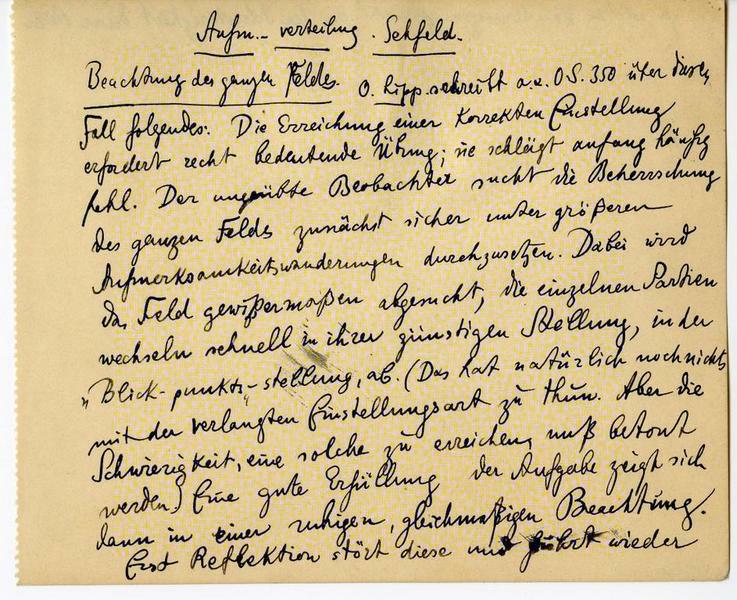 Aufm.- verteilung. Sehfeld.
Beachtung des ganzen Feldes. O. Lipp. schreibt a.a. O S. 350 über diesen
Fall folgendes: Die Erreichung einer korrekten Einstellung
erfordert recht bedeutende Übung; sie schlägt anfang häufig
fehl. Der ungeübte Beobachter sucht die Beherrschung
des ganzen Feldes zunächst sicher unter größeren
Aufmerksamkeitswanderungen durchzusetzen. Dabei wird
das Feld gewißermaßen abgesucht, die einzelnen Partien
wechseln schnell in ihrer günstigen Stellung, in der
„Blick-punkts„-stellung, ab. (Das hat natürlich noch nichts
mit der verlangten Einstellungsart zu thun. Aber die
Schwierigkeit, eine solche zu erreichen, muß betont
werden.) Eine gute Erfüllung der Aufgabe zeigt sich
dann in einer ruhigen, gleichmaßigen Beachtung.
Erst Reflektion stört diese und führt wieder